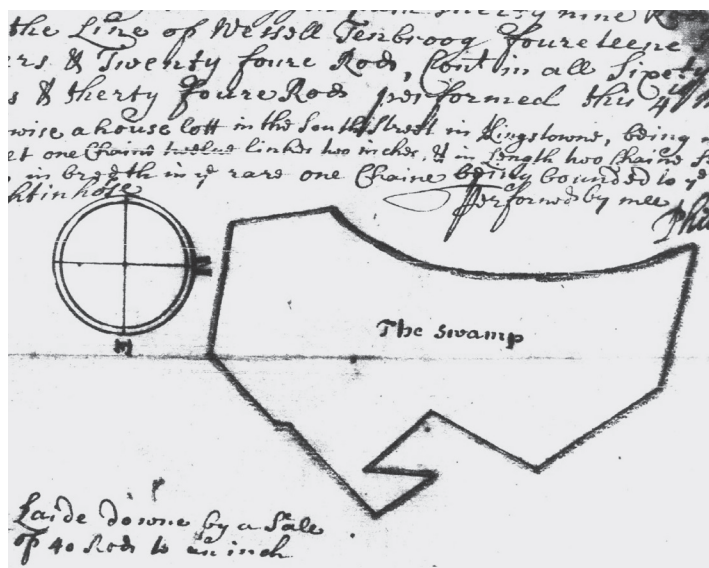 therty nine Rods
the Line of Wessell Tenbroog foureteene
ers & Twenty foure Rods, Cont in all Sixety
s & therty foure Rods performed this 4th
wise a house lott in the South Street in Kingstowne, being
et one Chaine twelve linkes two inches, & in Length two Chaine
in breath in ye rare one Chaine being bounded to ye
performed by mee
Phi
N
The swamp
E
Laide downe by a Sale
of 40 Rods to an inch